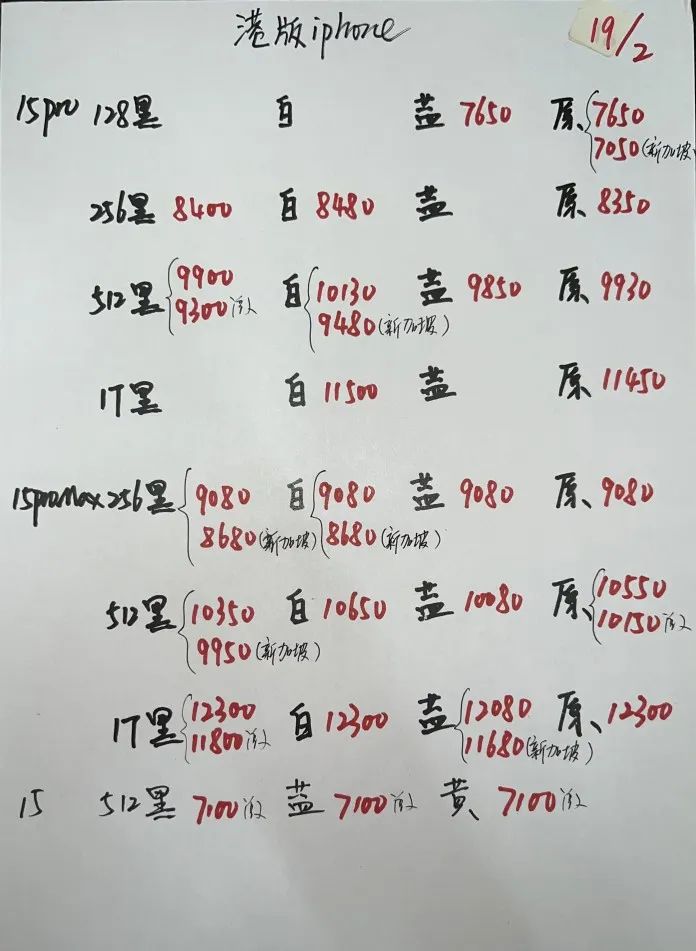 港版iphone 19/2
15pro 128黑 白 蓝 7650 原 7650
7050(新加坡
256黑 8400 白 8480 蓝 原 8350
512黑 9900 白 10130 蓝 9850 原 9930
9300激 9480(新加坡)
1T黑 白 11500 蓝 原 11450
15proMax 256黑 9080 白 9080 蓝 9080 原 9080
8680(新加坡) 8680(新加坡)
512黑 10350 白 10650 蓝 10080 原 10550
9950(新加坡) 10150激
1T黑 12300 白 12300 蓝 12080 原 12300
11800激 11680(新加坡)
15 512黑 7100激 蓝 7100激 黄 7100激